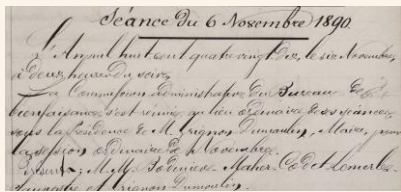 Séance du 6 Novembre 1890
L'An mil huit cent quatre vingt dix, le six Novembre
à deux heures du soir,
La Commission administrative du Bureau de
bienfaisance s'est réunie au lieu ordinaire de ses séances
sous la Présidence de M. Grignon Dumoulin, Maire, pour
la session ordinaire de Novembre.
Présents: M.M. Maher, Godet, Lemerle
et Grignon Dumoulin.